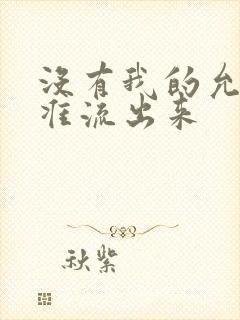 没有我的允
准流出来
秋紫